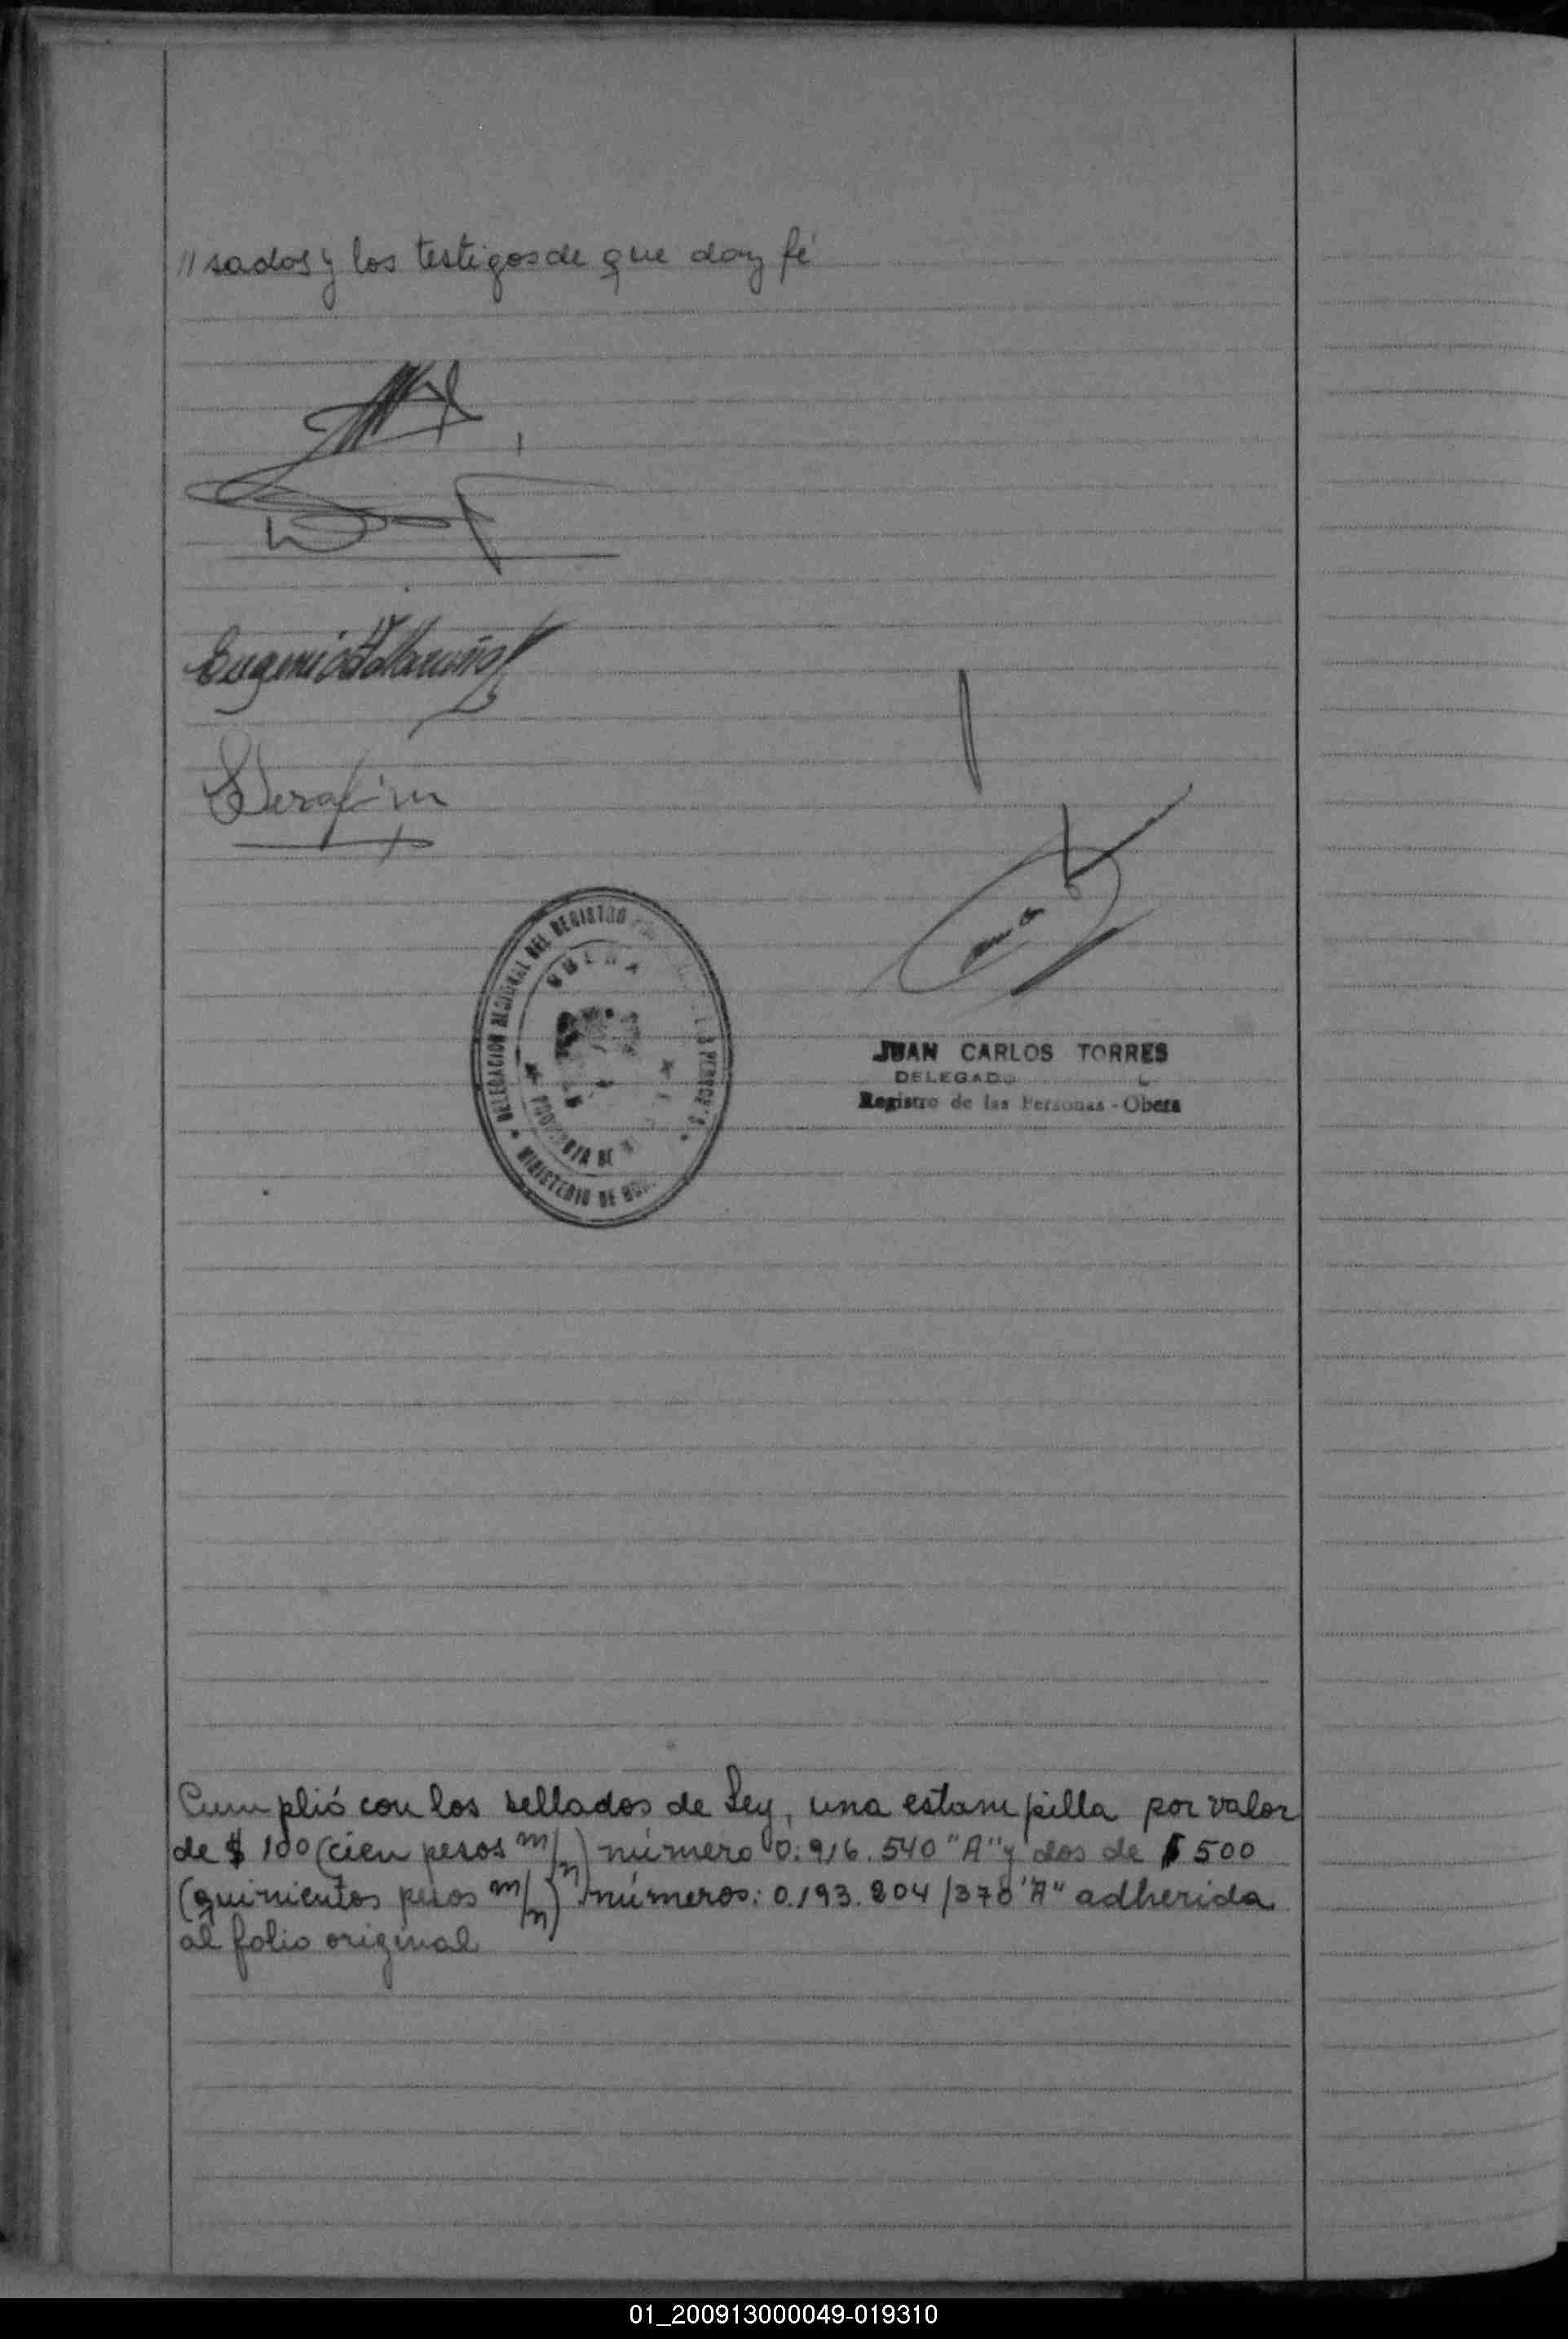 // sados y los testigos de que doy fé
Serafin
DELEGACION REGIONAL DEL REGISTRO
OBERA
PROVINCIA DE
MINISTERIO DE
JUAN CARLOS TORRES
DELEGADO
Registro de las Personas - Obera
Cumplió con los sellados de Ley, una estampilla por valor
de $ 100 (cien pesos m/n) número 0.916.540 "A" y dos de $ 500
(quinientos pesos m/n) números: 0.193.204/378 "A" adherida
al folio original
01_200913000049-019310